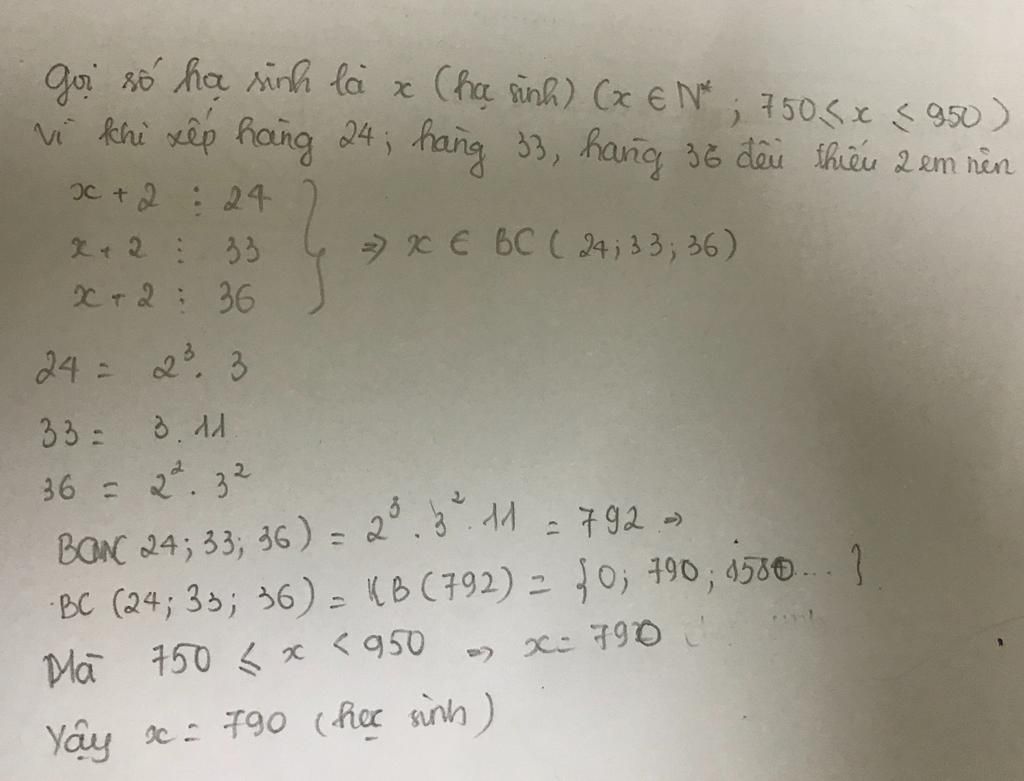 Gọi số họ sinh là x (họ sinh) (x ∈ N* ; 750 ≤ x ≤ 950)
Vì khi xếp hàng 24 ; hàng 33, hàng 36 đều thiếu 2 em nên
x + 2 ⋮ 24
x + 2 ⋮ 33 } ⇒ x ∈ BC ( 24 ; 33 ; 36)
x + 2 ⋮ 36
24 = 2³ . 3
33 = 3 . 11
36 = 2² . 3²
BCNN( 24 ; 33 ; 36 ) = 2³ . 3² . 11 = 792 ⇒
BC (24 ; 33 ; 36 ) = B (792) = { 0 ; 790 ; 1580 ... }
Mà 750 ≤ x < 950 ⇒ x = 790
Vậy x = 790 (học sinh)